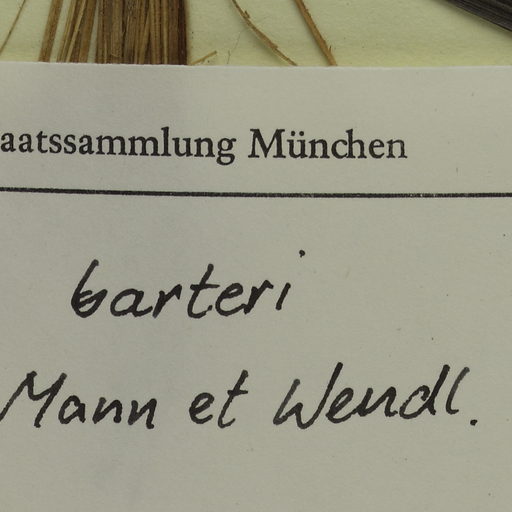 aatssammlung München
barteri
Mann et Wendl.